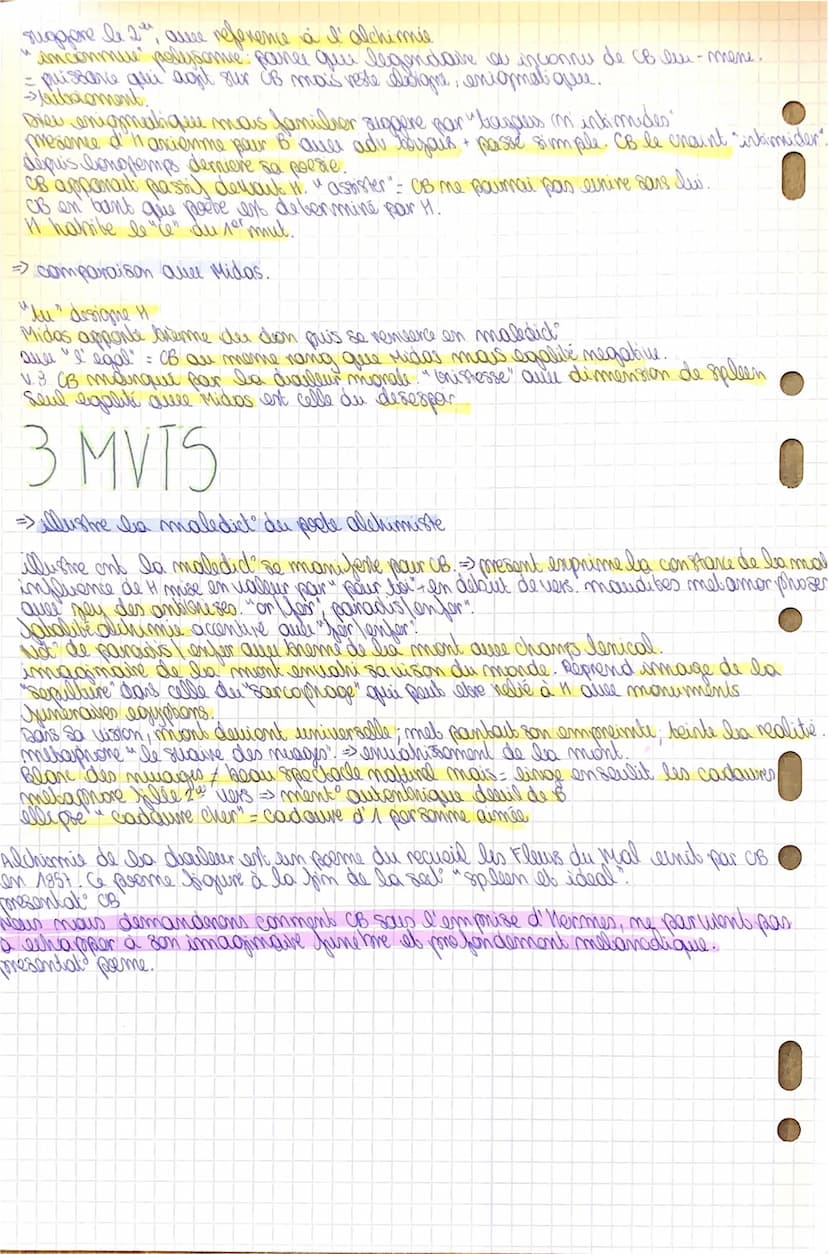 suggere le 2ᵉᵐ, avec reference à l'alchimie
"inconnue" polysemie: parce que legendaire ou inconnu de CB lui-meme.
= puissance qui agit sur CB mais reste eloigne, enigmatique.
Dieu enigmatique mais familier suggere par "toujours m'intimidas"
presence d'H ancienne pour B avec adv toujours + passé simple. CB le craint "intimider".
depuis longtemps derriere sa poesie.
CB apparait passif devant H. "assister" = CB ne pourrai pas ecrire sans lui.
CB en tant que poete est determiné par H.
H habite le "Ce" du 1er mvt.
=> comparaison avec Midas.
"tu" designe H
Midas apporte theme du don puis se renverse en maledict°
avec "l'egal" = CB au meme rang que Midas mais egalité negative.
v.8 CB marqué par la douleur morale. "tristesse" avec dimension de spleen
Seul egalité avec Midas est celle du desespoir
3 MVTS
=> illustre la maledict° du poete alchimiste
illustre cmt la maledict° se manifeste pour CB. => present exprime la constance de la mal
influence de H mise en valeur par "pour toi" en debut de vers. maudites metamorphoses
avec jeu des antitheses. "or/fer", paradis/enfer".
fatalité alchimie accentuée avec "fer/enfer".
Not° de paradis/enfer avec theme de la mort avec champs lexical.
imaginaire de la mort envahi sa vison du monde. Reprend image de la
"sepulture" dans celle du "sarcophage" qui peut etre relié à H avec monuments
funeraires egyptiens.
Dans sa vision, mort devient universelle; met partout son empreinte, teinte la realité.
metaphore "le suaire des nuages". => envahissement de la mort.
Blanc des nuages ≠ beau spectacle naturel mais = linge enseulit les cadavres
metaphore filée 2ᵉᵐ vers => ment° autentique deuil de B
ellipse "cadavre cher" = cadavre d'1 personne aimée
Alchimie de la douleur est un poeme du recueil les Fleurs du Mal ecrit par CB
en 1857. Ce poeme figure à la fin de la sect° "spleen et ideal".
presentat° CB
Nous nous demanderons comment CB sous l'emprise d'Hermes, ne parvient pas
à echapper à son imaginaire funebre et profondement melancolique.
presentat° poeme.